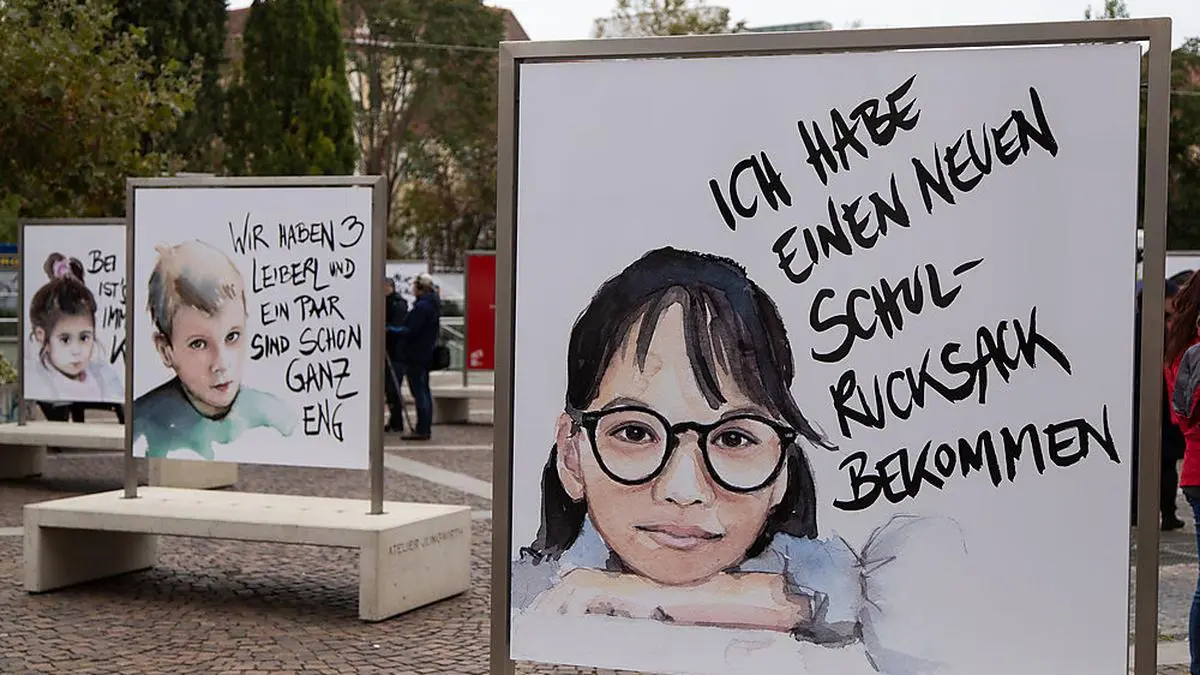 BEI
WIR HABEN 3
LEIBERL UND
EIN PAAR
SIND SCHON
GANZ
ENG
ATELIER JUNGWIRTH
ICH HABE
EINEN NEUEN
SCHUL-
RUCKSACK
BEKOMMEN